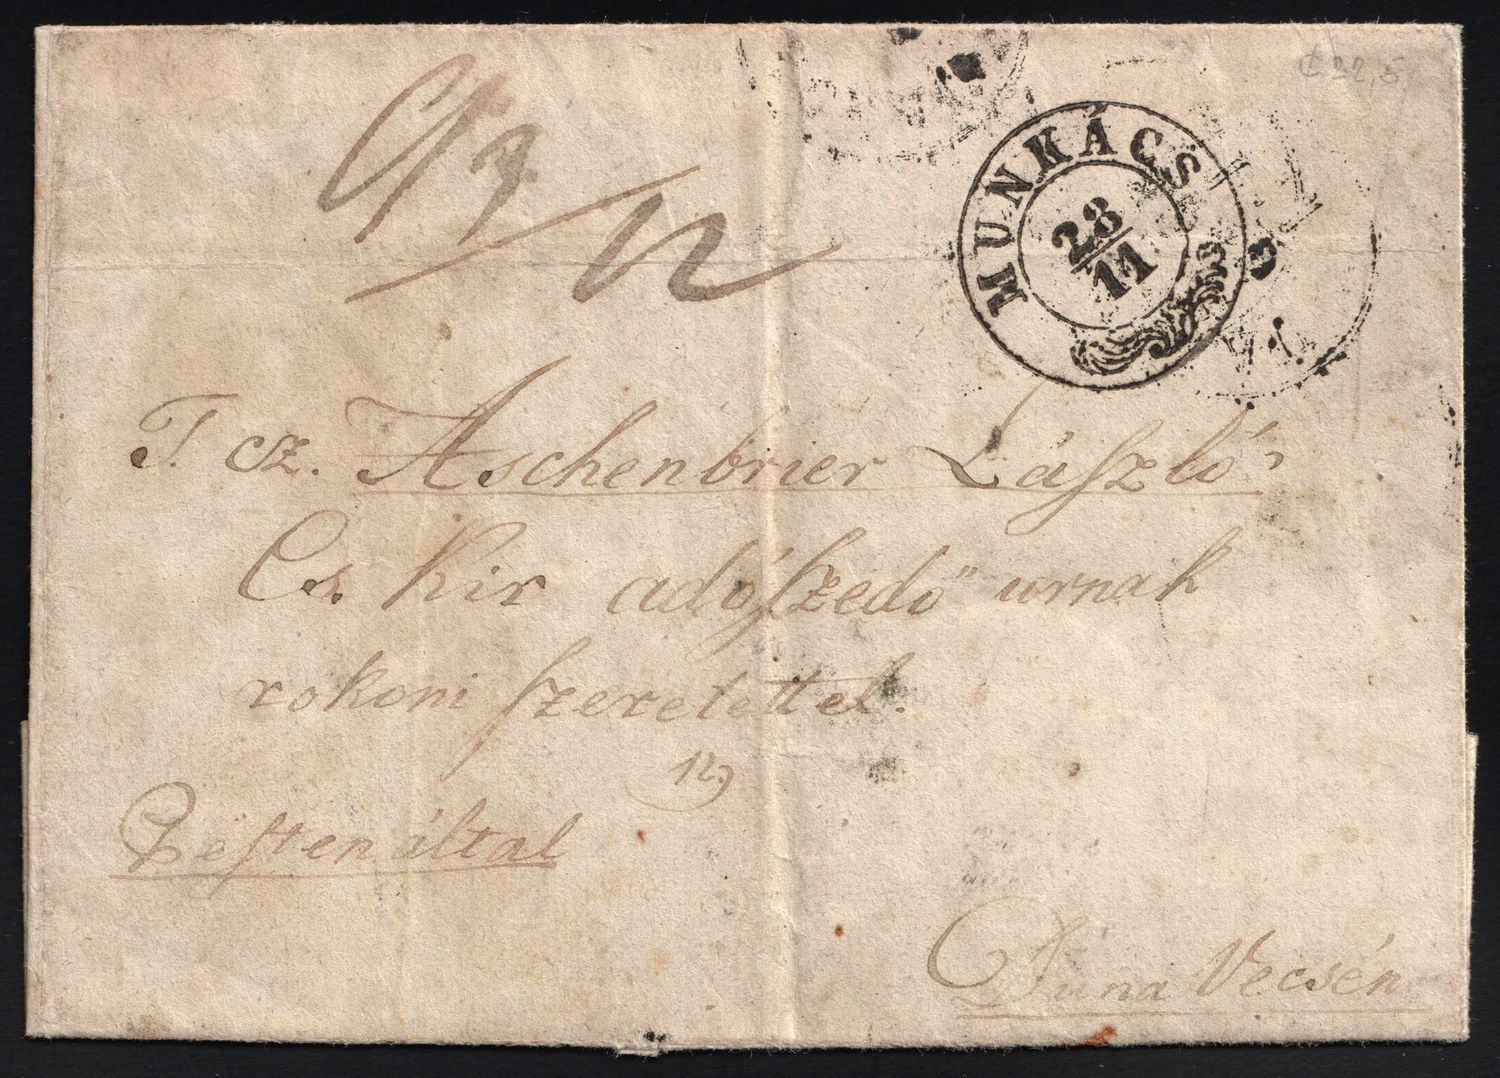 ₵ 22,5
MUNKÁCS
28/11
9/3/12
T. cz. Aschenbrier László
Cs. Kir adószedő urnak
rokoni szeretettel.
12
Pesten által
Duna Vecsén